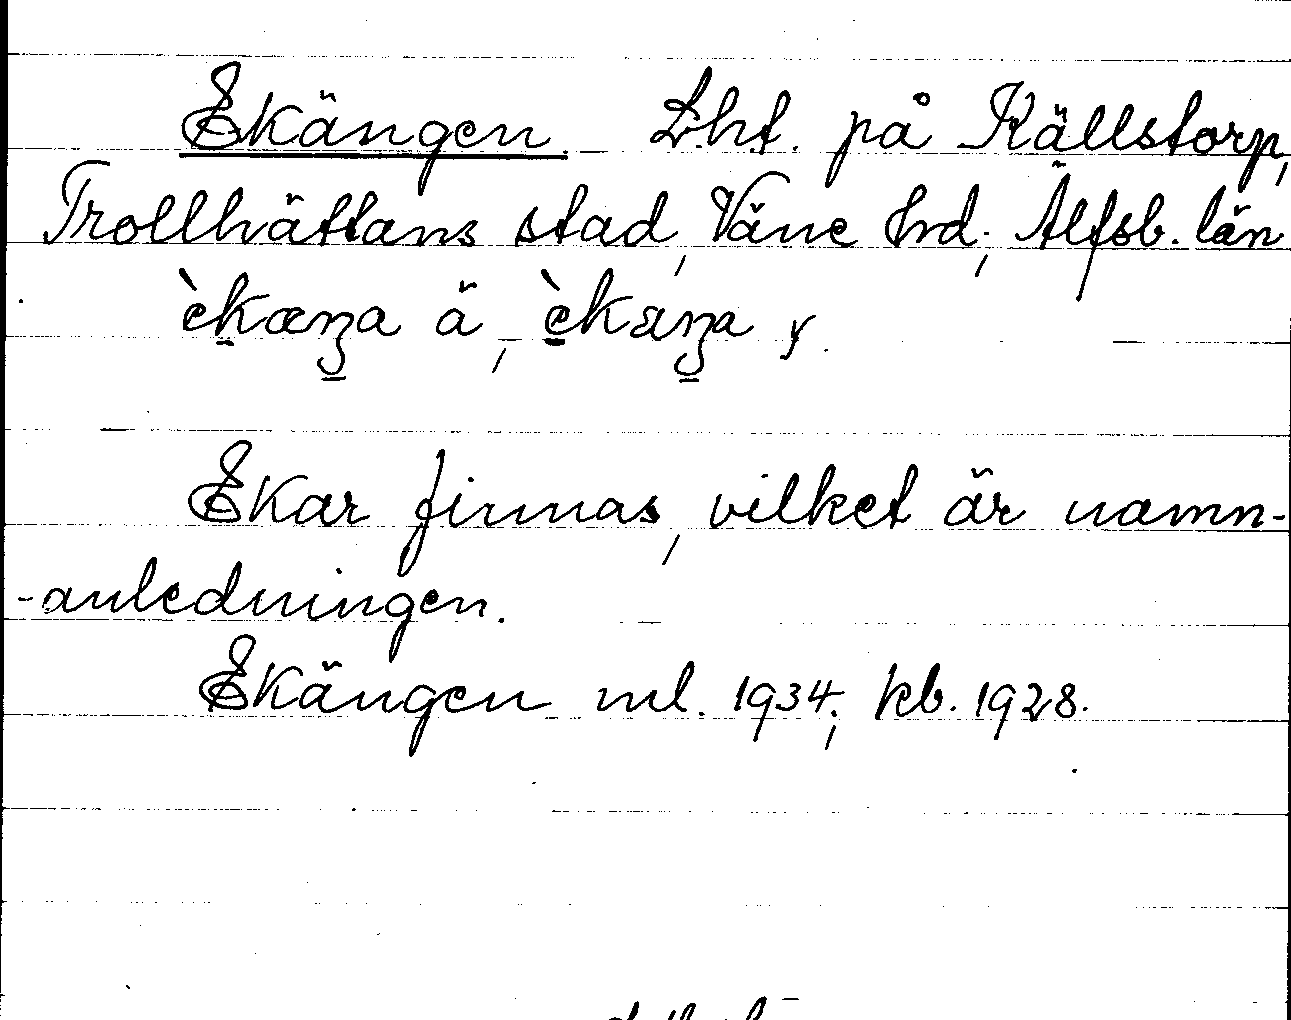 Ekängen. Lht. på Källstorp,
Trollhättans stad, Väne hrd, Älfsb. län
èkæŋa ä, èkaŋa y.
Ekar finnas, vilket är namn-
-anledningen.
Ekängen ml. 1934; kb. 1928.